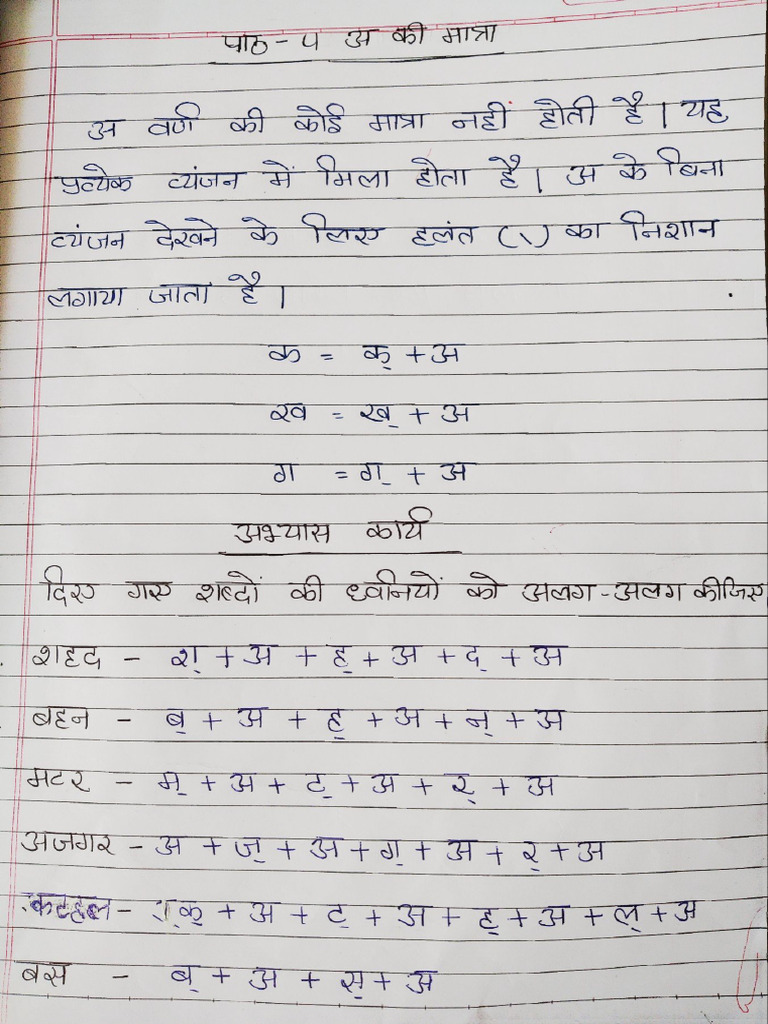 पाठ - 5 अ की मात्रा
अ वर्ण की कोई मात्रा नहीं होती है । यह
प्रत्येक व्यंजन में मिला होता है । अ के बिना
व्यंजन देखने के लिए हलंत (्) का निशान
लगाया जाता है ।
क = क् + अ
ख = ख् + अ
ग = ग् + अ
अभ्यास कार्य
दिए गए शब्दों की ध्वनियों को अलग-अलग कीजिए
शहद - श् + अ + ह् + अ + द् + अ
बहन - ब् + अ + ह् + अ + न् + अ
मटर - म् + अ + ट् + अ + र् + अ
अजगर - अ + ज् + अ + ग् + अ + र् + अ
कटहल - क् + अ + ट् + अ + ह् + अ + ल् + अ
बस - ब् + अ + स् + अ